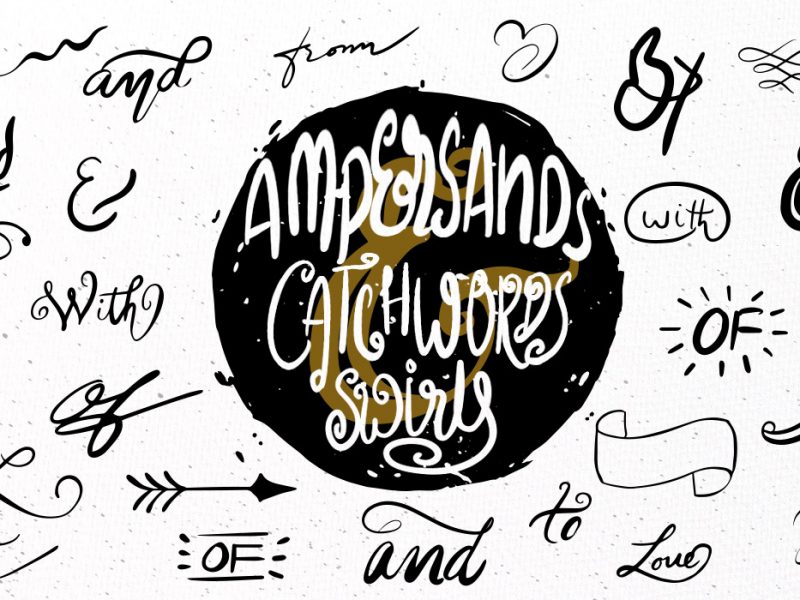 and
from
By
&
AMPERSANDS
&
CATCHWORDS
swirly
with
With
OF
of
OF
and
to
Love